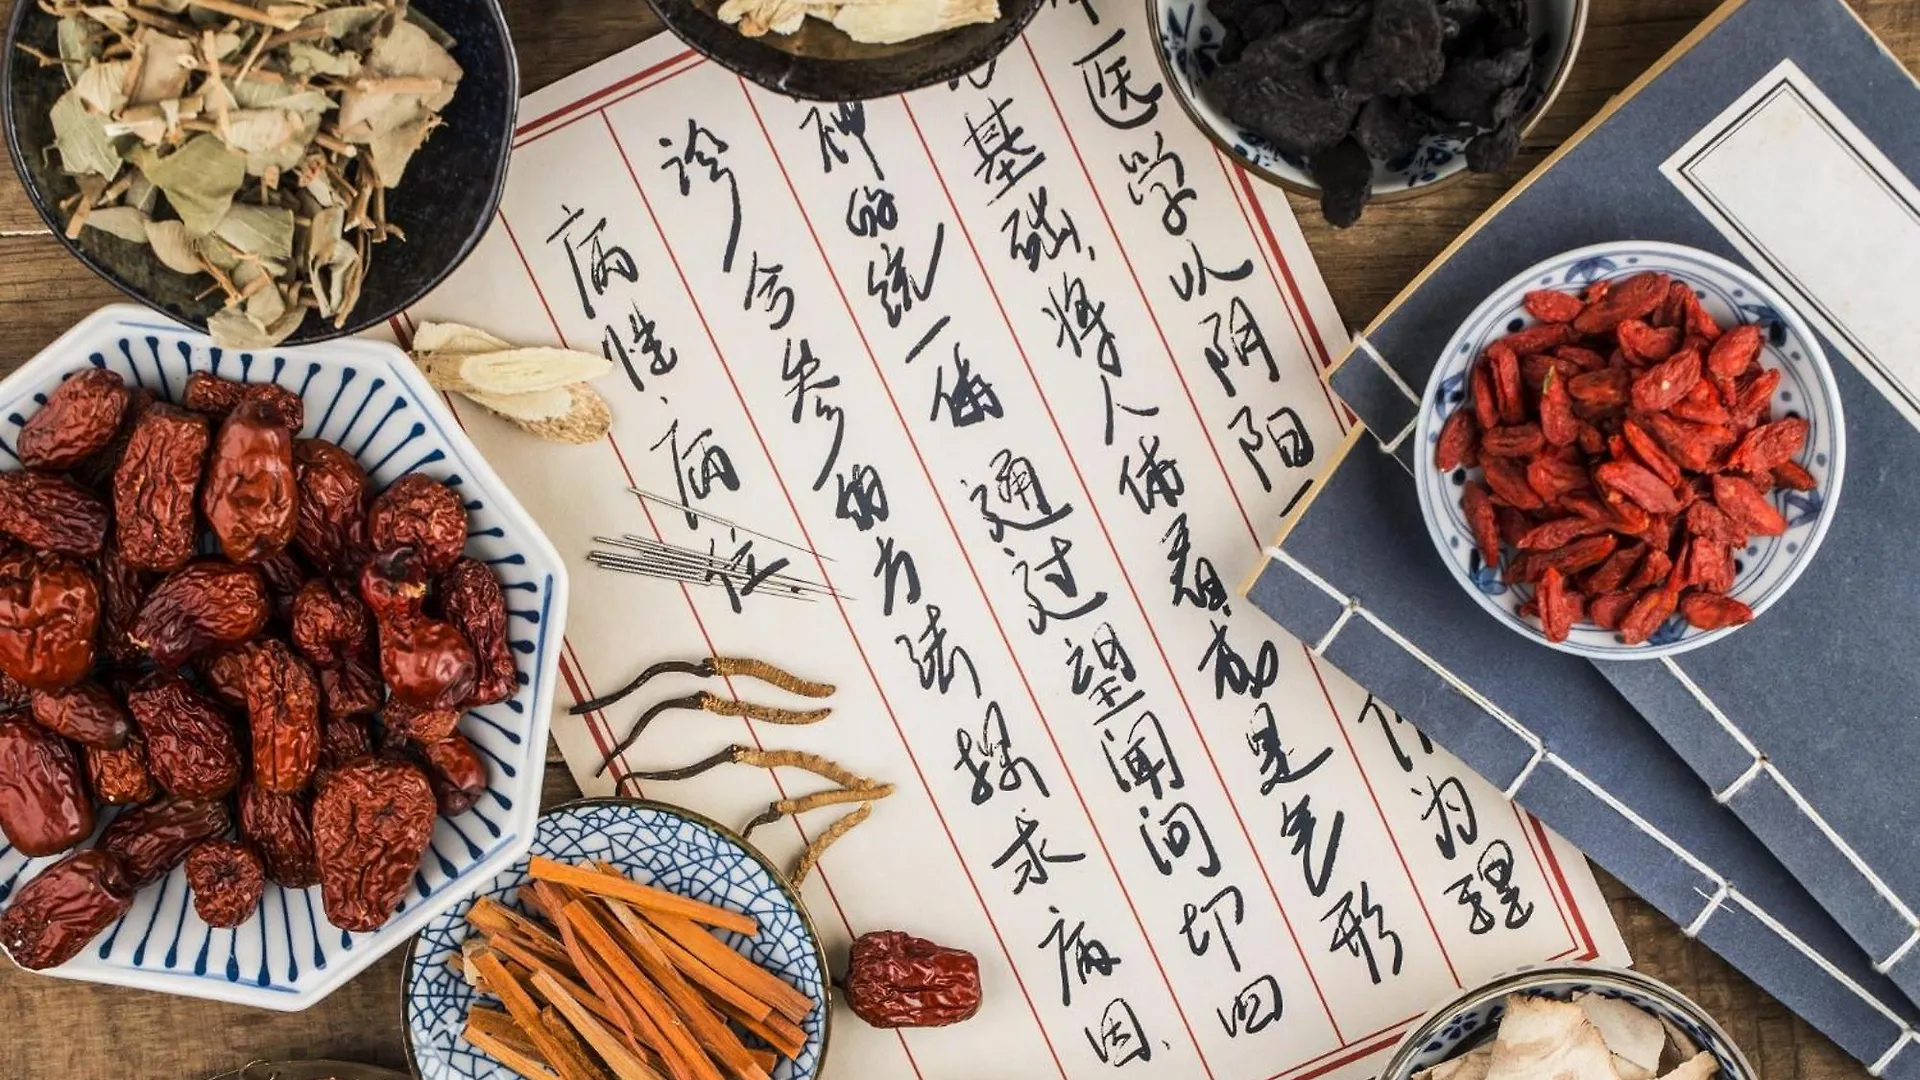 医学以阴阳 为理
基础、将人体看成是气形
神的统一体 通过望闻问切四
诊合参的方法探求病因、
病性、病位